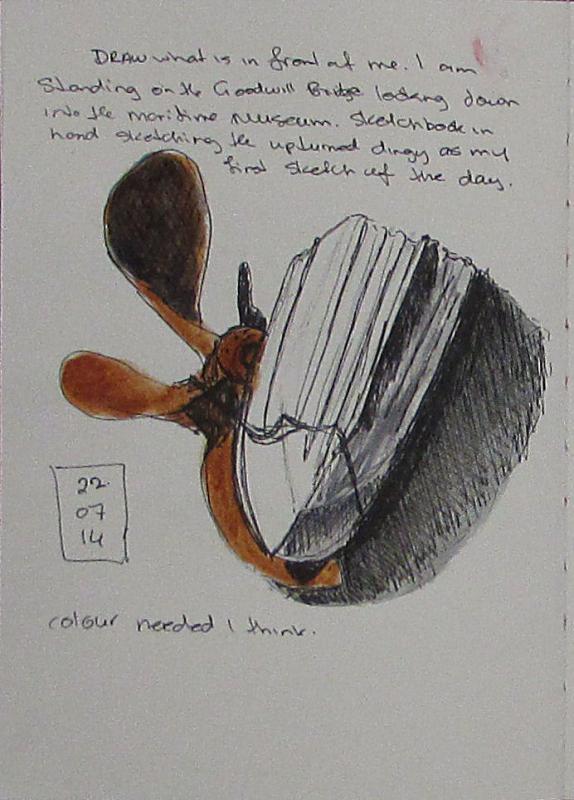 DRAW what is in front of me. I am
Standing on the Goodwill Bridge looking down
into the maritime Museum. Sketchbook in
hand sketching the upturned dingy as my
first sketch of the day.
22
07
14
colour needed I think.